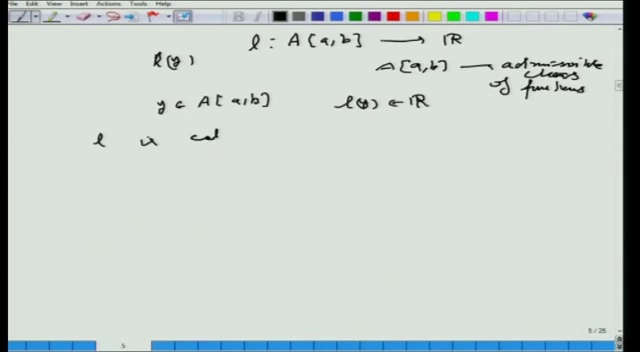 File Edit View Insert Actions Tools Help
l : A[a,b] ⟶ ℝ
l(y)
A[a,b] — admissible class of functions
y ∈ A[a,b] l(y) ∈ ℝ
l is cal
5 / 25
5